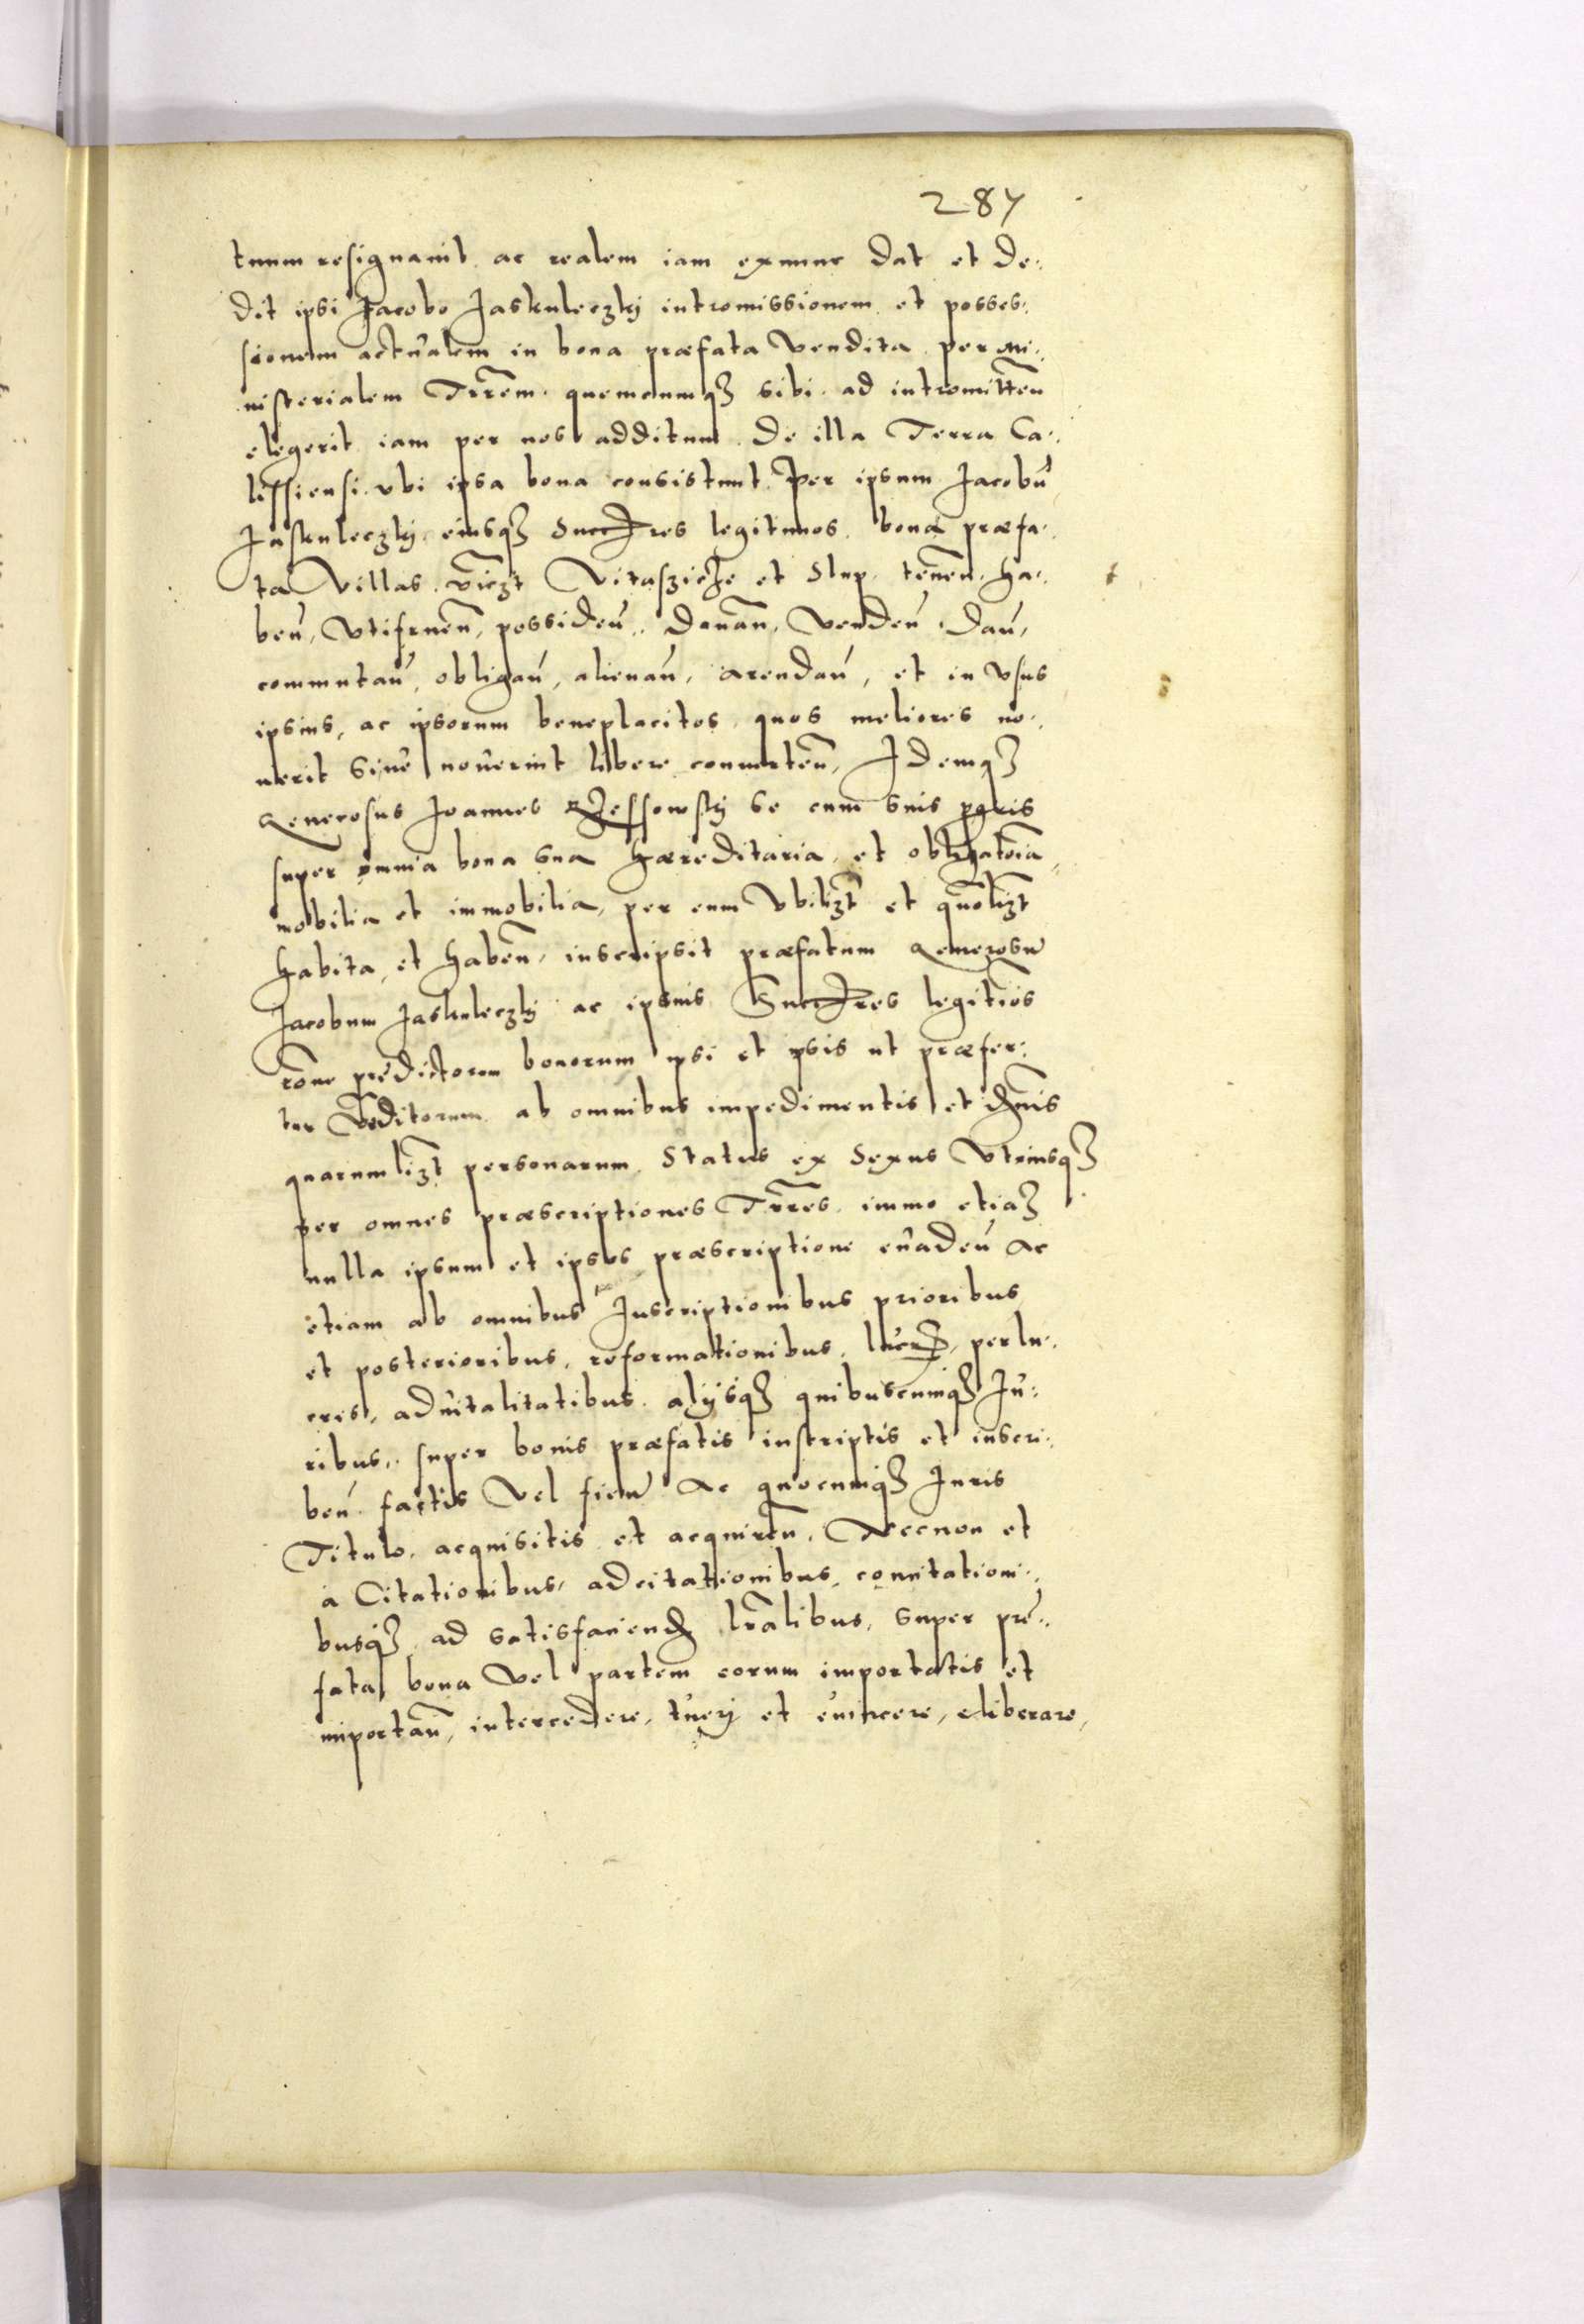 287
tuum resignauit ac realem iam exnunc dat et de:
dit ipsi Jacobo Jaskuleczkÿ intromissionem et posses:
sionem actualem in bona præfata vendita per mi:
nisterialem Trrẽm quemcumqꝫ sibi ad intromitteñ
elegerit iam per nos additum de illa Terra Ca:
lissiensi vbi ipsa bona consistunt Per ipsum Jacobũ
Jaskuleczkÿ eiusqꝫ Succres legitimos bona præfa:
ta Villas vicꝫt Vitaszicze et Slup teneñ ha:
beñ, vtifrueñ, possideñ, donañ, vendeñ, dañ,
commutañ, obligañ, alienañ, arendañ, et in vsus
ipsius, ac ipsorum beneplacitos quos meliores no:
uerit siue nouerint libere conuerteñ, Idemqꝫ
Generosus Joannes Rzessowskÿ se cum suis
super omnia bona sua hæreditaria et obligatoria,
mobilia et immobilia, per eum vbilizt et quolizt
habita, et habeñ, inscripsit præfatum Generosũ
Jacobum Jaskuleczkÿ ac ipsius Succres legitĩos
rõne predictorum bonorum ipsi et ipsis ut præfer:
tur venditorum ab omnibus impedimentis et
quarumlizt personarum Status ex Sexus vtriusqꝫ
per omnes præscriptiones Trrẽs immo etiaꝫ
nulla ipsum et ipsos præscriptione euadeñ ac
etiam ab omnibus Inscriptionibus prioribus
et posterioribus, reformationibus, perlu:
cris, aduitalitatibus alÿsqꝫ quibuscumqꝫ Iu:
ribus, super bonis præfatis inscriptis et inscri:
beñ factis vel fieñ ac quocumqꝫ Iuris
Titulo acquisitis et acquireñ, Necnon et
à Citationibus, adcitationibus, connitationi:
busqꝫ ad satisfaciend lrãlibus, super pre:
fata bona vel partem eorum importatis et
importañ, intercedere, tuerj et euincere, eliberare,